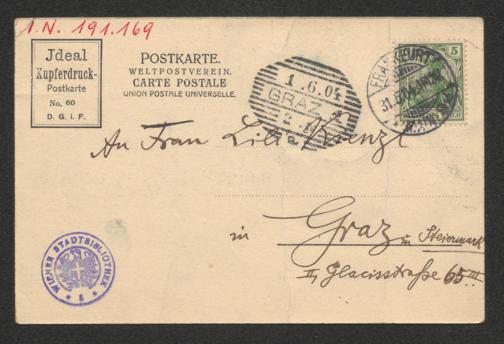 I.N. 191.169
Jdeal
Kupferdruck-
Postkarte
No. 60
D. G. i. F.
POSTKARTE.
WELTPOSTVEREIN.
CARTE POSTALE
UNION POSTALE UNIVERSELLE.
1.6.04
GRAZ 1
FRANKFURT
5
An Frau Lili Kienzl
in Graz in Steiermark
II, Glacisstraße 65 III
WIENER STADTBIBLIOTHEK